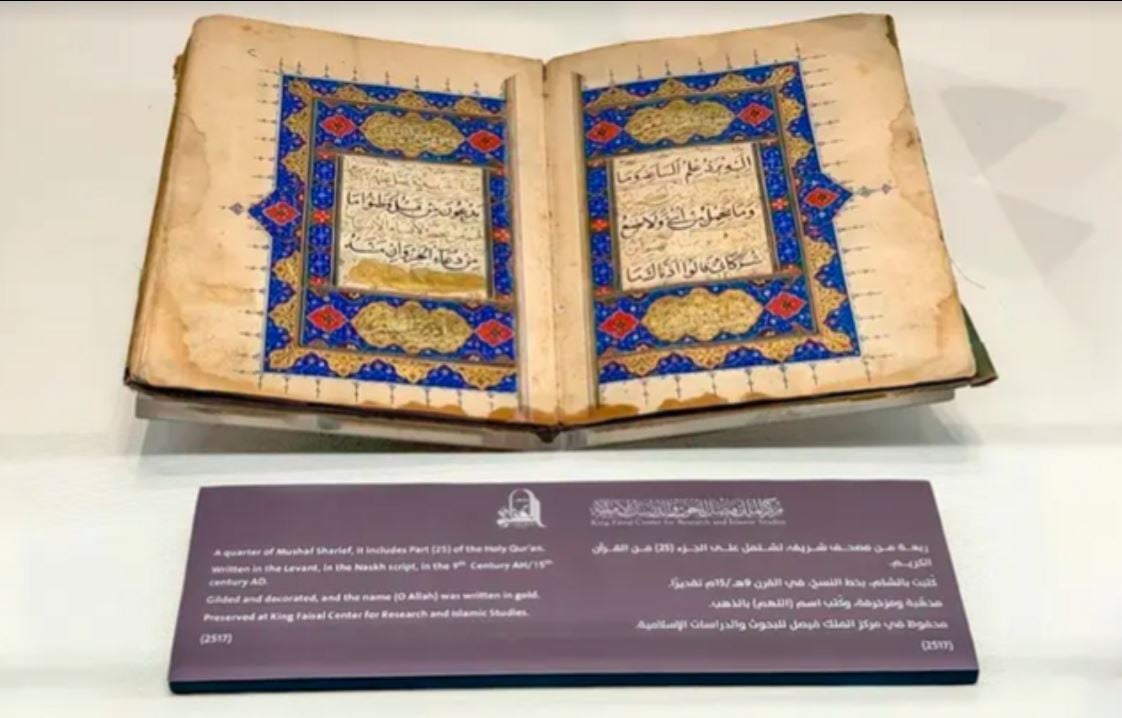 اليه يرد علم الساعة وما
وما تحمل من انثى ولا تضع
قالوا
يدعون من قبل وظنوا ما
من دعاء الخير وان مسه
مركز الملك فيصل للبحوث والدراسات الإسلامية
King Faisal Center for Research and Islamic Studies
ربعة من مصحف شريف، تشتمل على الجزء (25) من القرآن
الكريم.
كُتبت بالشام، بخط النسخ، في القرن 9هـ/15م تقديرًا.
مذهّبة ومزخرفة، وكُتب اسم (اللهم) بالذهب.
محفوظ في مركز الملك فيصل للبحوث والدراسات الإسلامية.
(2517)
A quarter of Mushaf Sharief, it includes Part (25) of the Holy Qur'an.
Written in the Levant, in the Naskh script, in the 9th Century AH/15th
century AD.
Gilded and decorated, and the name (O Allah) was written in gold.
Preserved at King Faisal Center for Research and Islamic Studies.
(2517)